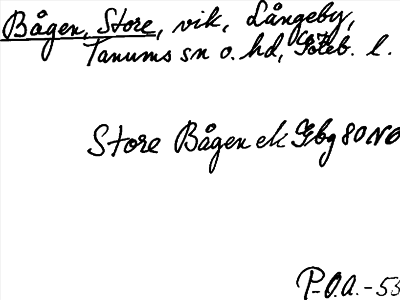 Bågen, Store, vik, Långeby,
Tanums sn o. hd, Göteb. l.
Store Bågen ek Gbg 80 NO
P-O.A.-53